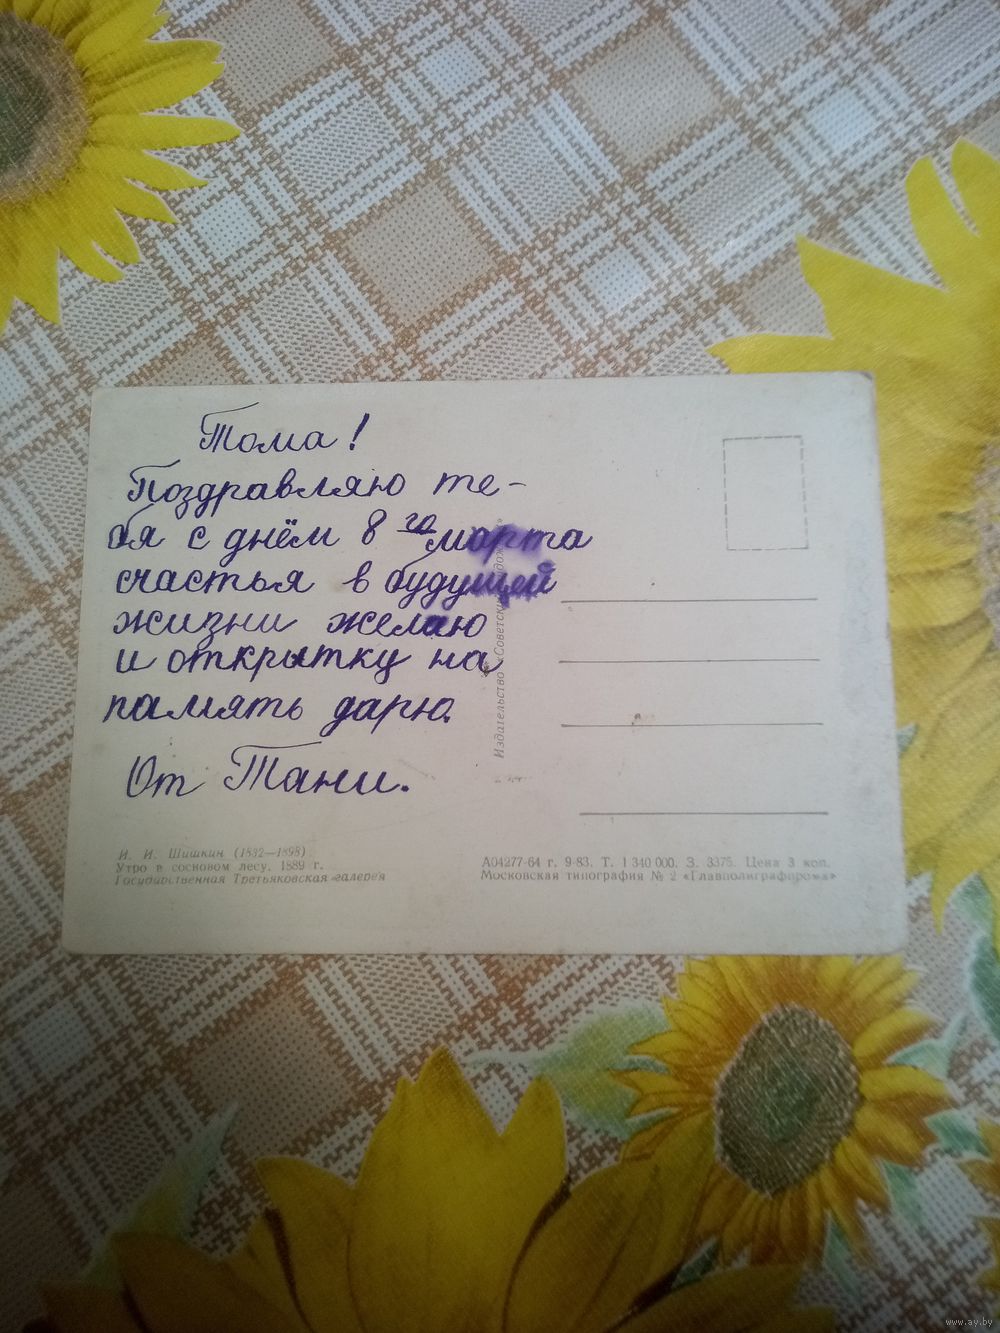 Тома!
Поздравляю те-
бя с днём 8 го марта
счастья в будущей
жизни желаю
и открытку на
память дарю.
От Тани.
Издательство «Советский художник»
И. И. Шишкин (1832—1898)
Утро в сосновом лесу. 1889 г.
Государственная Третьяковская галерея
А04277-64 г. 9-83. Т. 1 340 000. З. 3375. Цена 3 коп.
Московская типография № 2 «Главполиграфпрома»
www.ay.by